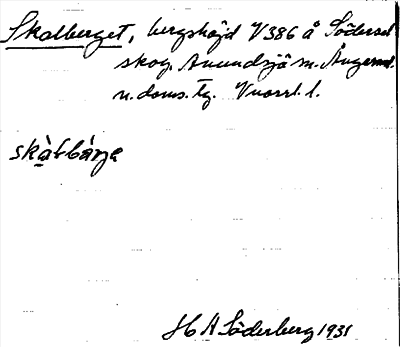 Skalberget, bergshöjd V386 å Södersel
skog. Anundsjö sn. Ångerml.
n. doms. tg. Vnorrl. l.
skàlbárje
H A Söderberg 1931